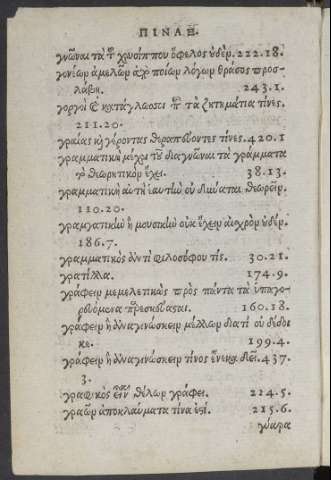 ΠΙΝΑΞ.
γνῶναι τὰ χρυσία που ὄφελος οὐδὲν. 222.18.
γονέων ἀμελῶν ποίων λόγων θράσος προσ-
λάβῃ. 243.1.
γοργοὶ κατάγλωσσοι τὰ ζητημάτια τίνες.
211.20.
γραίας κỳ γέροντας θεραπεύοντες τίνες. 420.1
γραμματικὴ μέχρι τοῦ διαγνῶναι τὰ γράμματα
τὸ θεωρητικὸν ἔχει. 38.13.
γραμματικὴ αὐτὴ ἑαυτὴν οὐ δύναται θεωρεῖν.
110.20.
γραμματικὴν ἢ μουσικὴν οὐκ ἔχειν αἰσχρὸν οὐδέν.
186.7.
γραμματικὸς ἀντὶ φιλοσόφου τίς. 30.21.
γρατίλλα. 174.9.
γράφειν μεμελετικὼς πρὸς πάντα τὰ ὑπαγο-
ρευόμενα 160.18.
γράφειν ἢ ἀναγινώσκειν μέλλων διατί οὐ δέδοι
κε. 199.4.
γράφειν ἢ ἀναγινώσκειν τίνος ἕνεκα δεῖ. 437.
3.
γραφικὸς εἶναι θέλων γράφει. 224.5.
γραῶν ἀποκλαύματα τίνα ἐστί. 215.6.
γύαρα